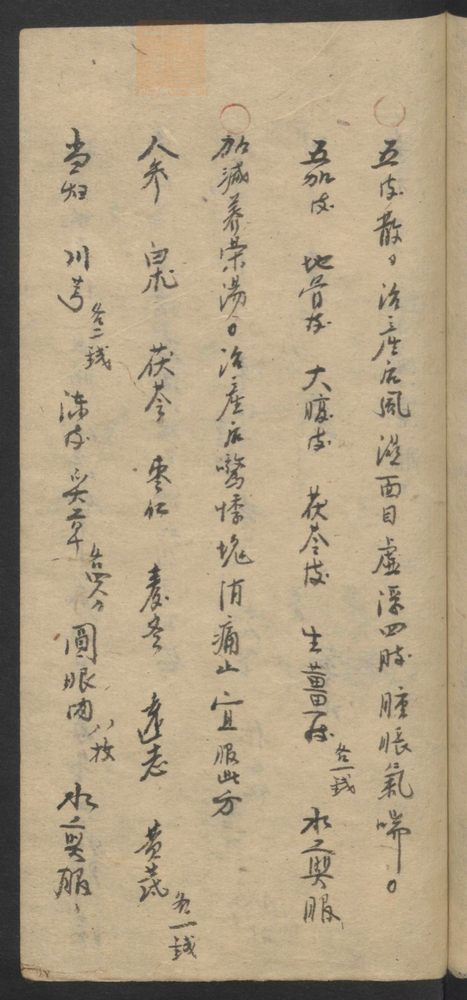 ○五皮散。治產后風濕面目虛浮四肢腫脹氣喘。
五加皮 地骨皮 大腹皮 茯苓皮 生薑皮各一錢 水煎服
○加減養榮湯。治產后驚悸塊消痛止宜服此方
人參 白朮 茯苓 棗仁 麦冬 遠志 黄芪各一錢
当归 川芎各二錢 陳皮 炙草各四分 圓眼肉八枚 水煎服